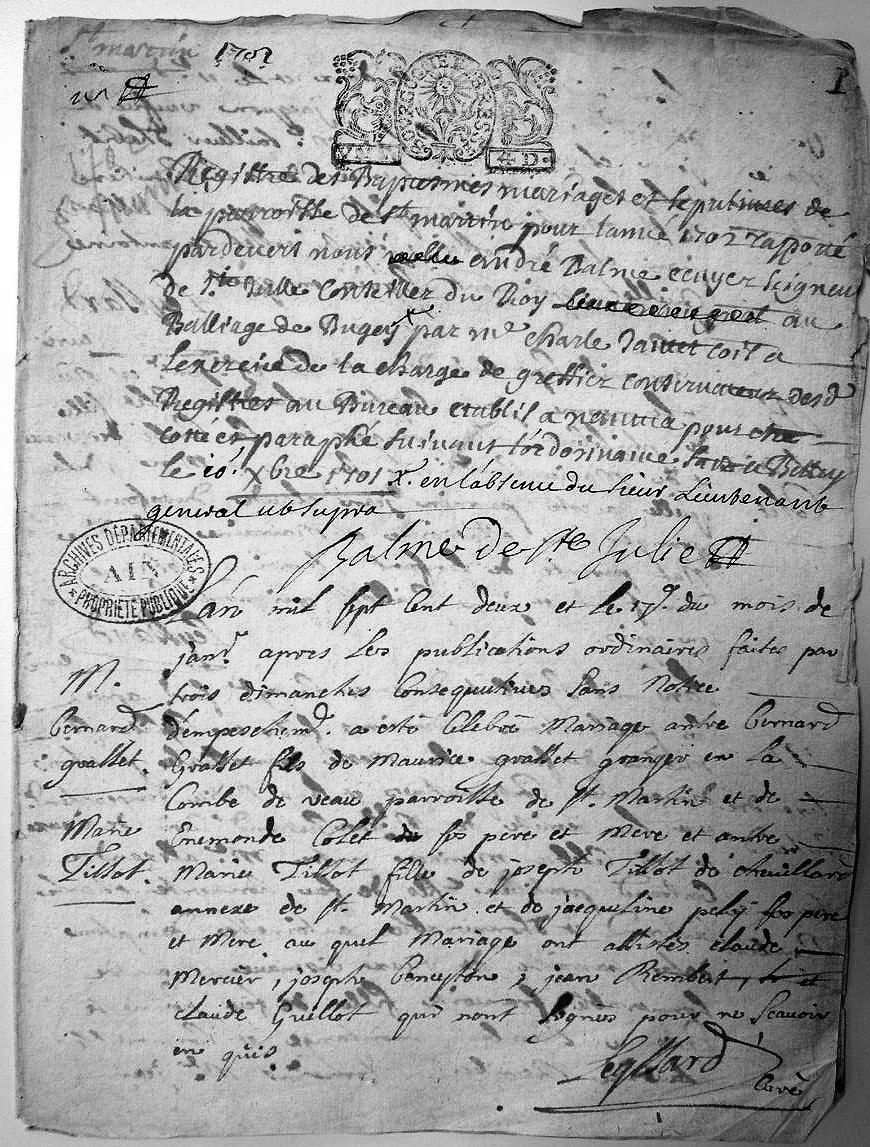 St martin 1702
1
BOURGOGNE ET BRESSE
4 D.
Registre des Baptesmes mariages et sepultures de
la parroisse de St martin pour lannee 1702 rapporté
pardevent nous andré Balme ecuyer seigneur
de Ste Julle conseiller du Roy au
Balliage de Bugey x par mr charle
lexercice de la charge de greffier conservateur desd
Registres au Bureau etabli a nantua pour
cotté et paraphé suivant lordonnance
le 10e Xbre 1701 x. en labsence du sieur Lieutenant
general ub supra
Balme de Ste Julie
ARCHIVES DÉPARTEMENTALES
AIN
PROPRIÉTÉ PUBLIQUE
Lan mil sept cent deux et le 17e du mois de
janr apres les publications ordinaires faites par
M.
trois dimanches consequutives sans notice
Bernard
d'empeschemt. a esté celebré Mariage antre Bernard
grallet.
Grallet fils de Maurice grallet granger en La
Combe de veau parroisse de St. Martin et de
Marie
Enemonde Colet ses pere et mere et antre
Tillot.
Marie Tillot fille de joseph Tillot de chevillard
annexe de St. Martin et de jacqueline ses pere
et Mere au quel Mariage ont assistés claude
Mercier, joseph, jean Rembert, et
claude Guillot qui nont signés pour ne scavoir
en quis
Curé